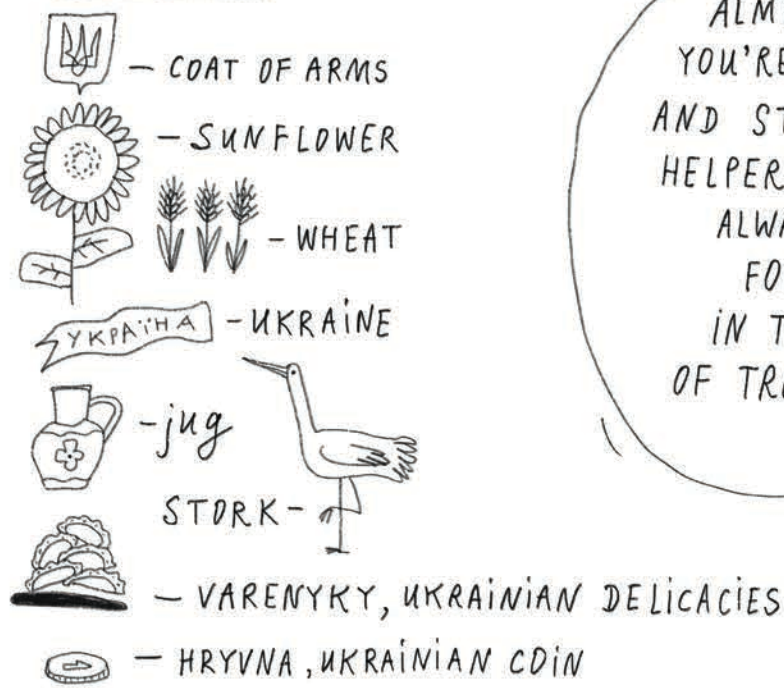 — COAT OF ARMS
— SUNFLOWER
— WHEAT
УКРАЇНА — UKRAINE
— jug
STORK —
— VARENYKY, UKRAINIAN DELICACIES
— HRYVNA, UKRAINIAN COIN
YOU'RE
AND
HELPER
OF